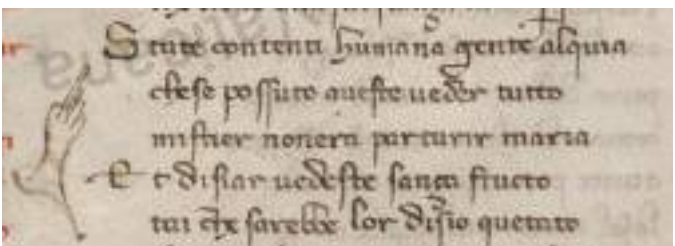 State contenti humana gente al quia
che se possuto aueste ueder tutto
mistier non era parturir maria
Et disiar uedeste sança fructo
tai che sarebbe lor disio quetato